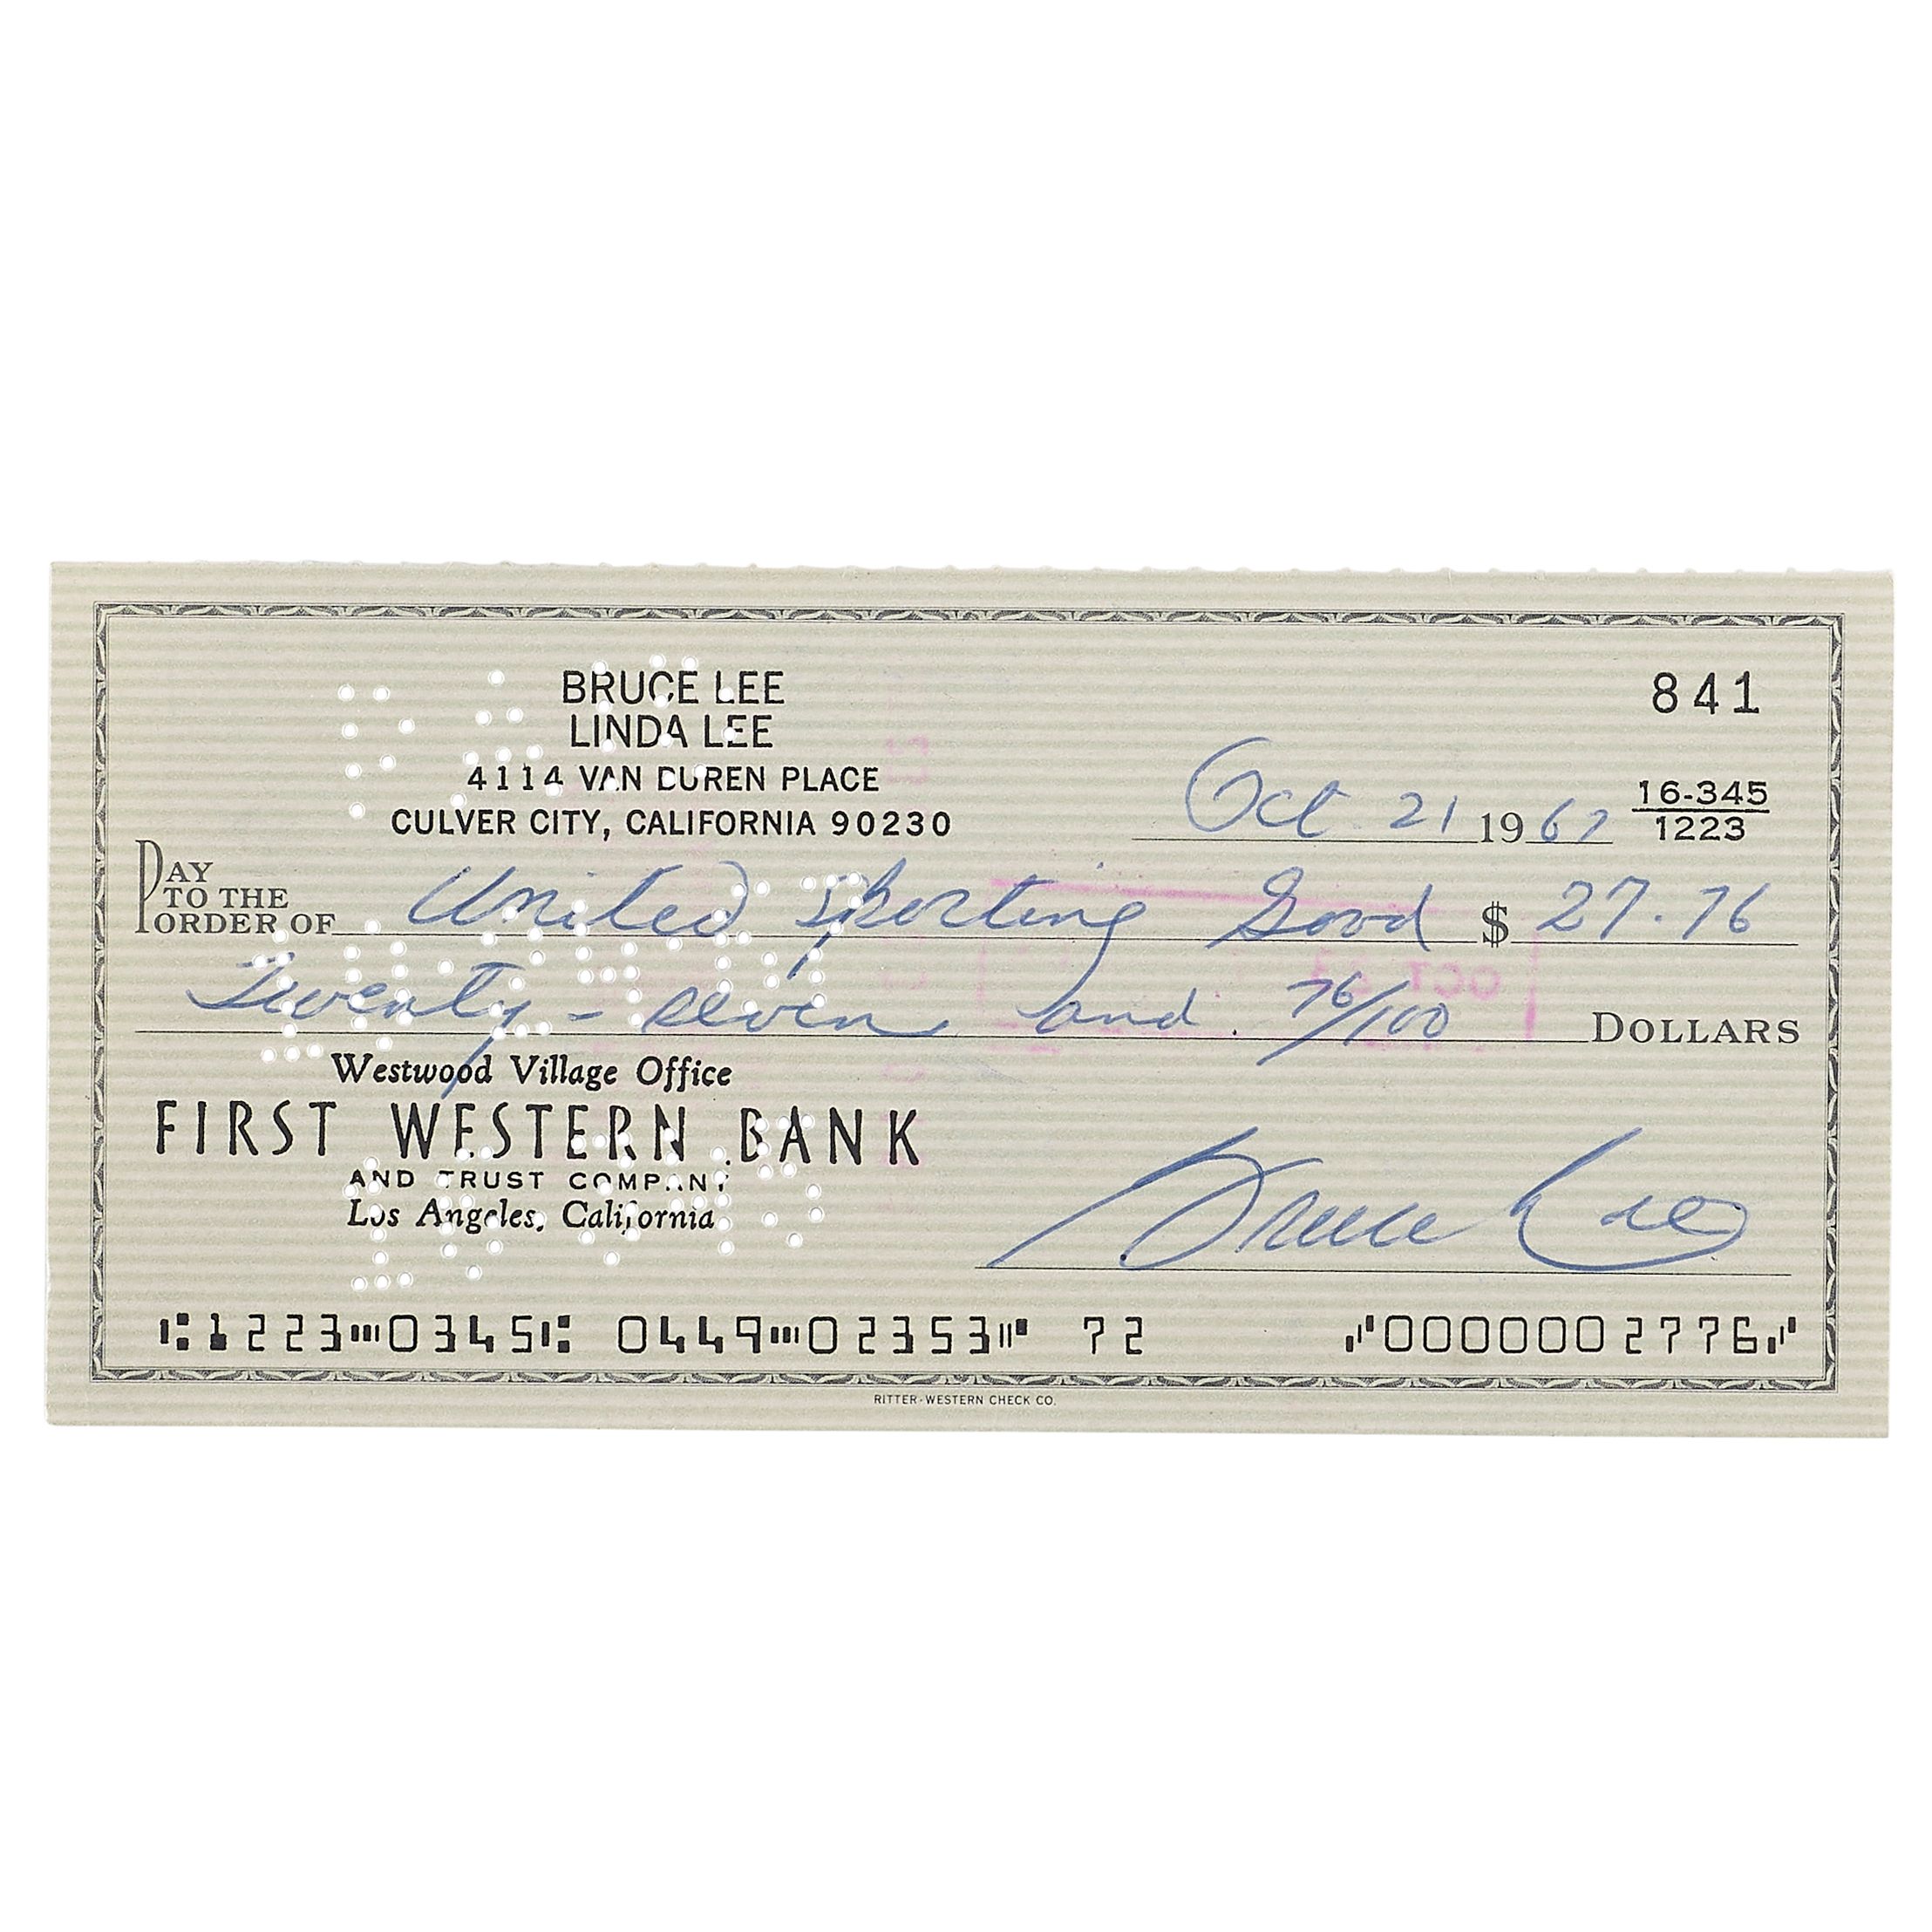 BRUCE LEE
LINDA LEE
841
4114 VAN BUREN PLACE
CULVER CITY, CALIFORNIA 90230
Oct 21 1967
16-345
1223
PAY TO THE ORDER OF United Sporting Good $ 27.76
Twenty - seven and 76/100 DOLLARS
Westwood Village Office
FIRST WESTERN BANK
AND TRUST COMPANY
Los Angeles, California
Bruce Lee
⑆1223⑉0345⑆ 0449⑉02353⑈ 72 ⑇0000002776⑇
RITTER-WESTERN CHECK CO.